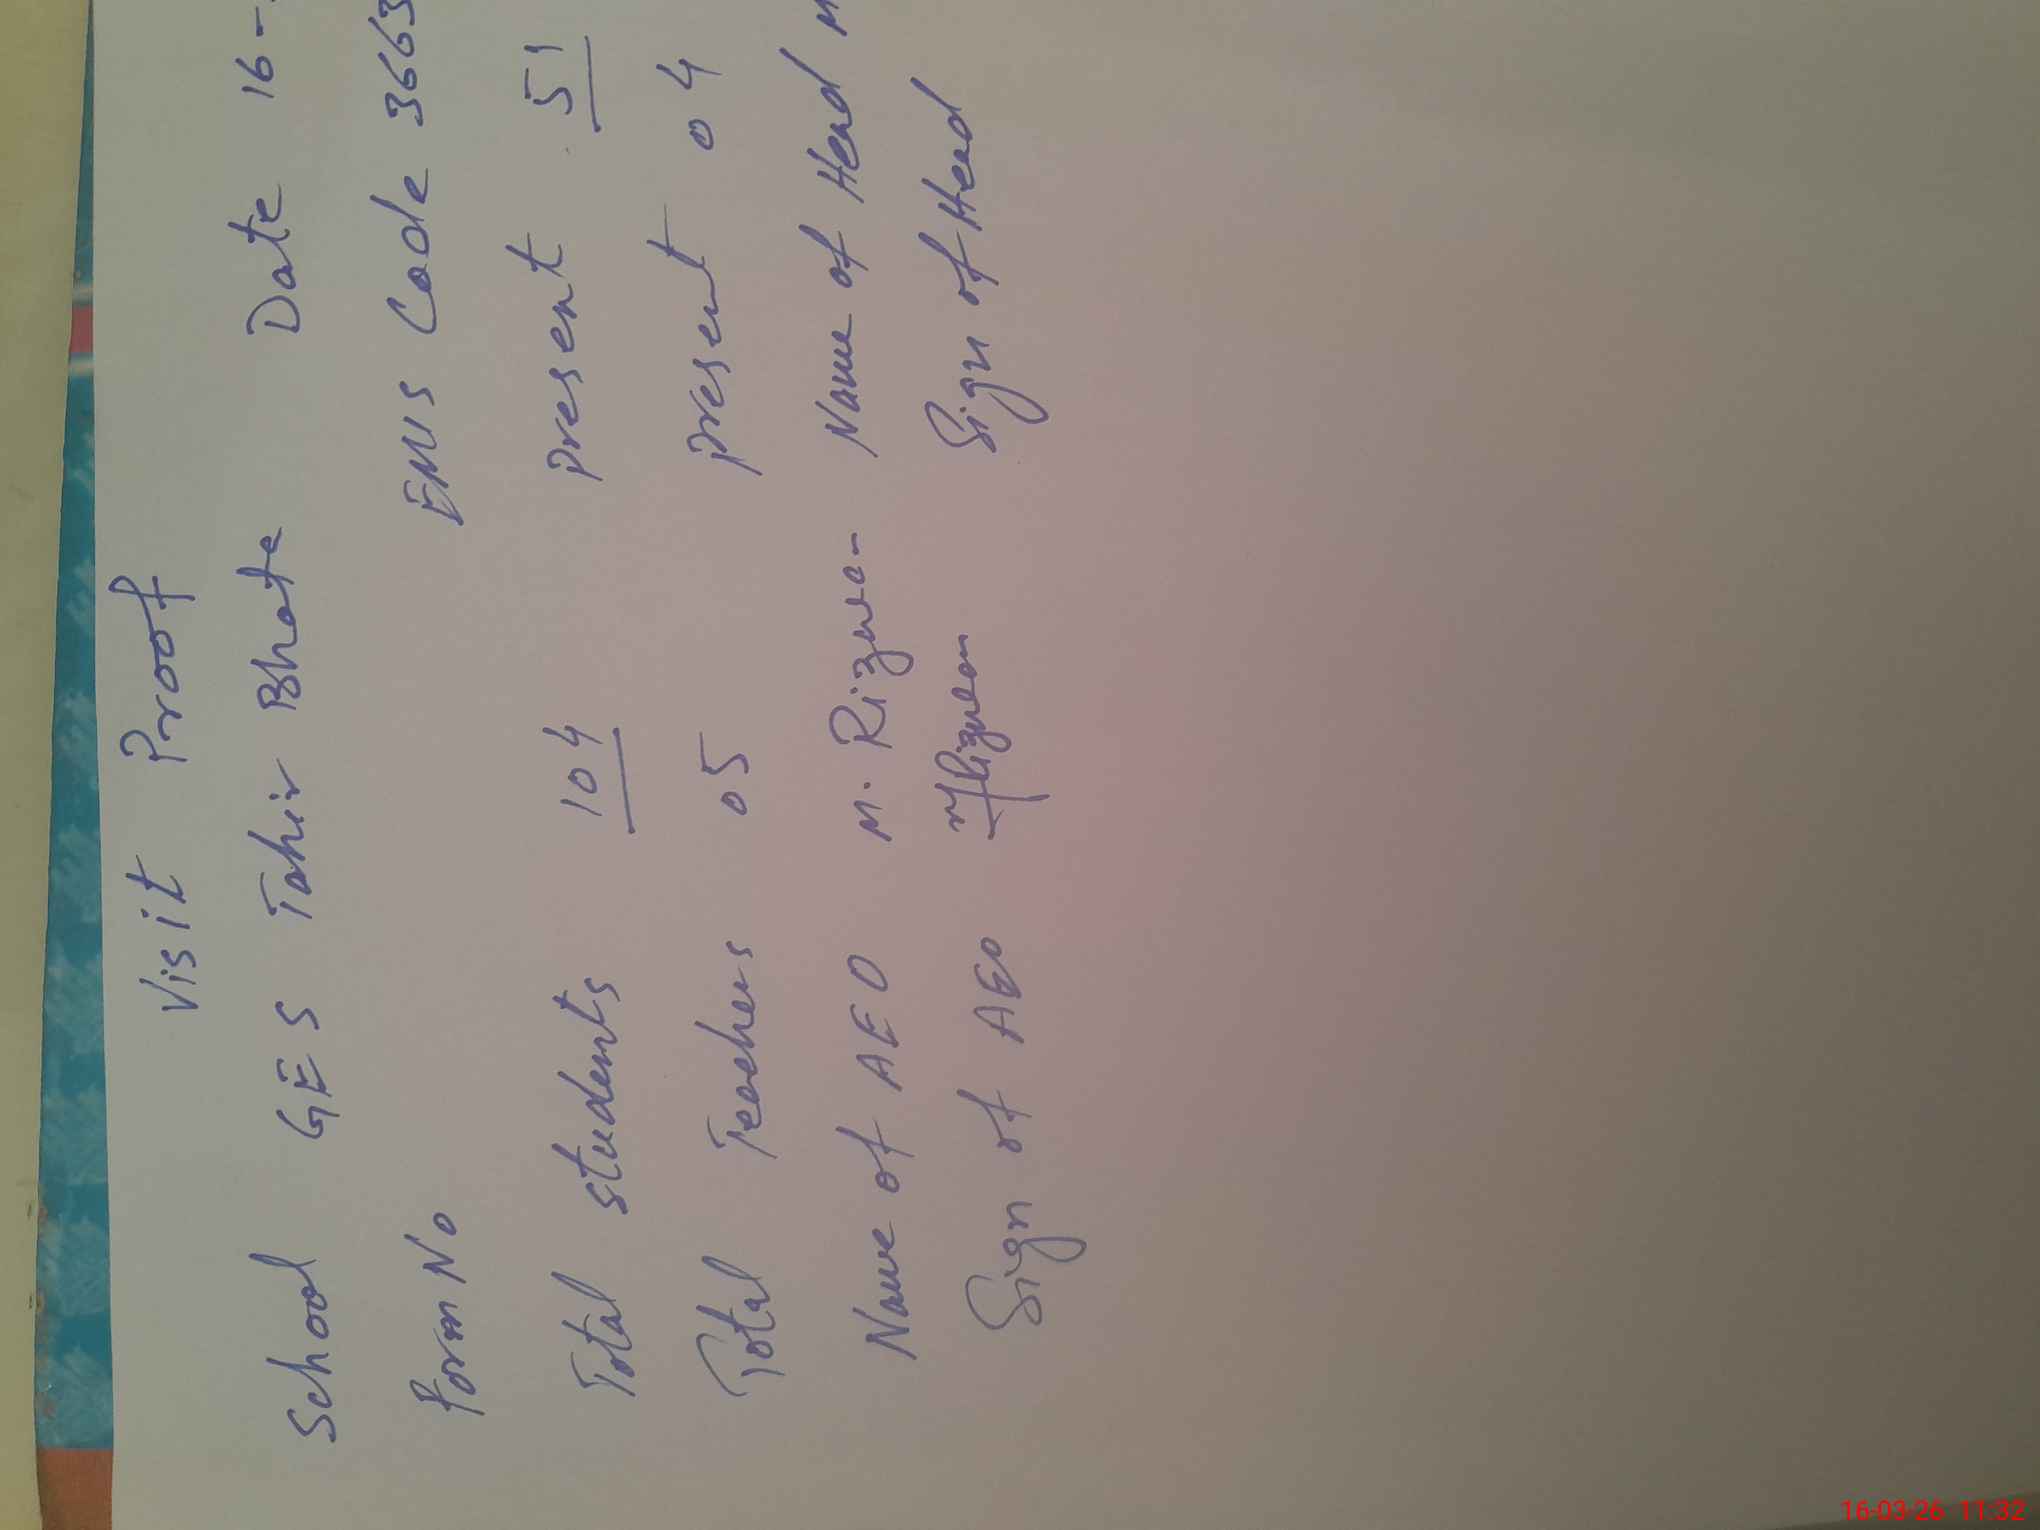 Visit Proof
School GES Tahir Bhate Date 16-
Form No EMIS Code 3663
Total students 104 present 51
Total Teachers 05 present 04
Name of AEO M. Rizwan Name of Head M
Sign of AEO MRizwan Sign of Head
16-03-26 11:32